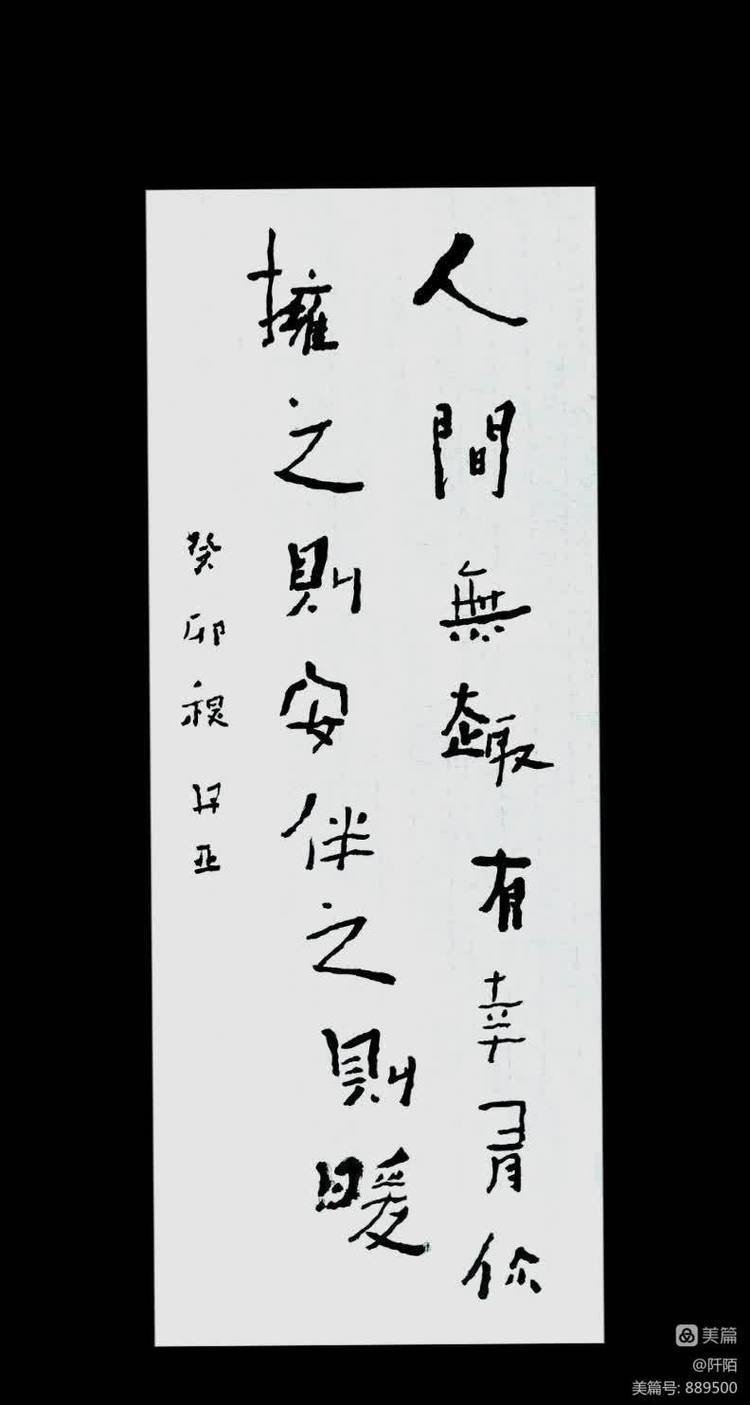 人間無趣有幸你
擁之則安伴之則暖
癸卯亚
美篇
@阡陌
美篇号: 889500